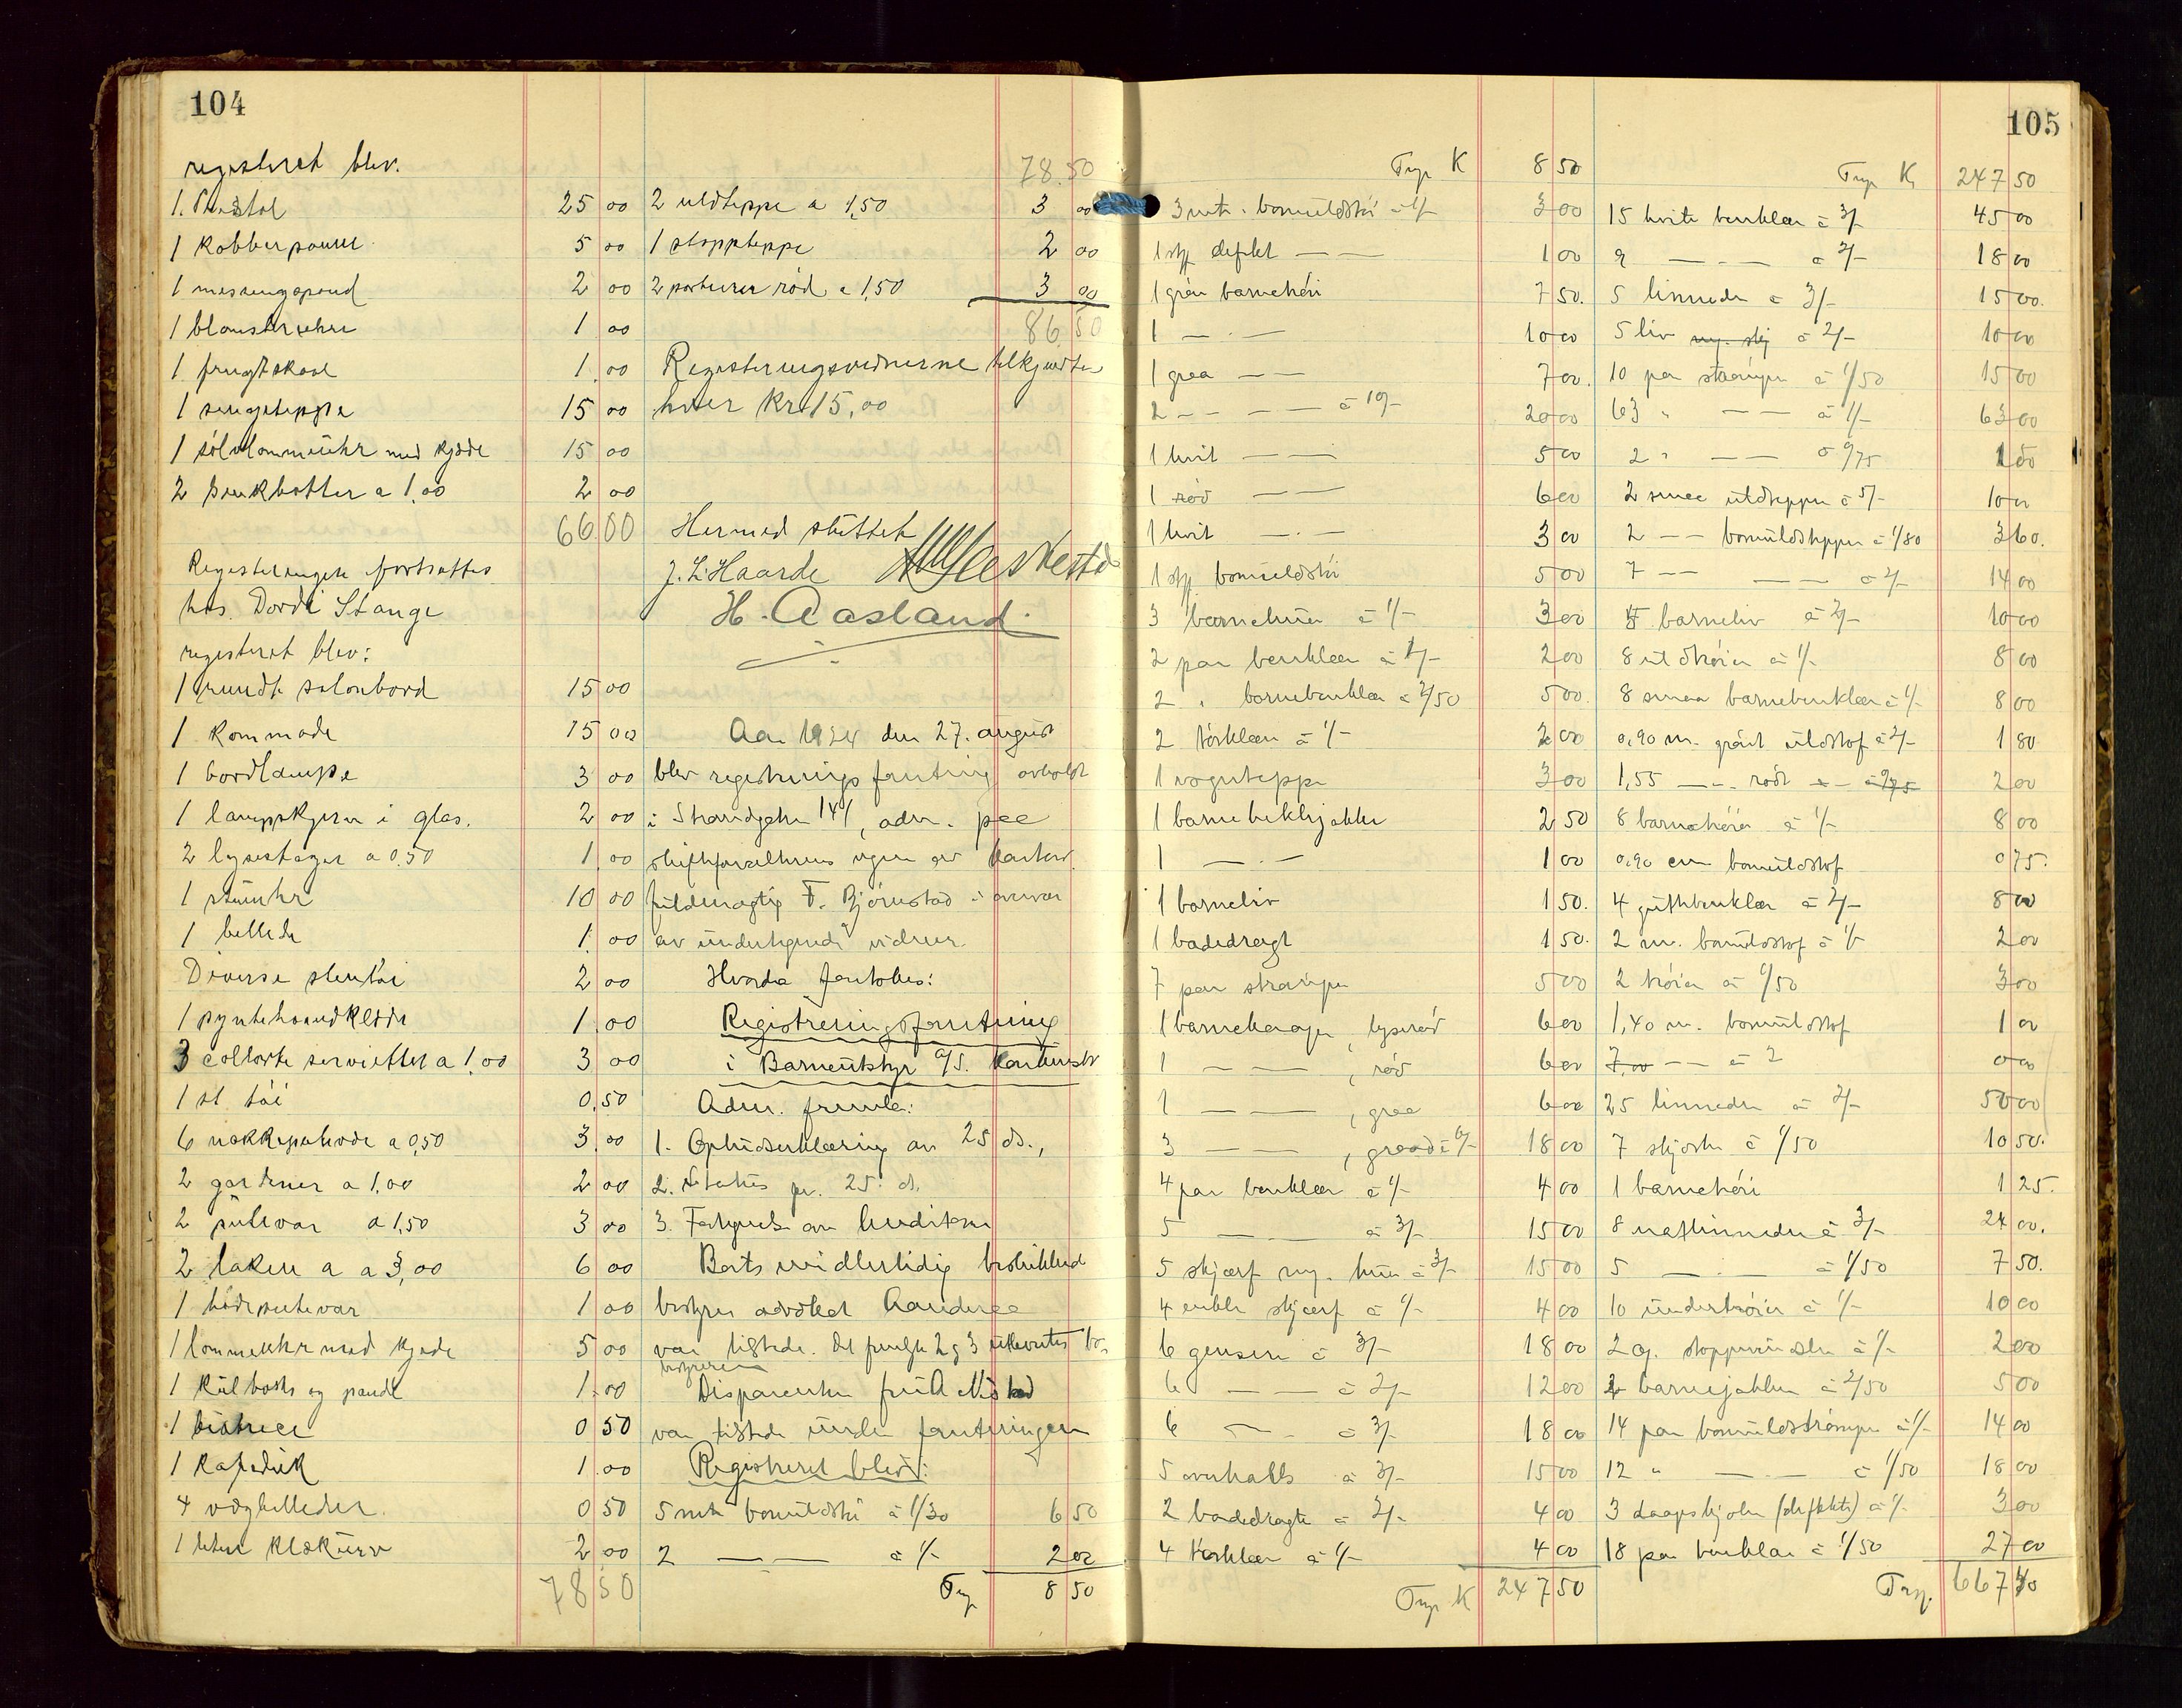 104
registeret blev.
1. 25 00
1 kobber 5 00
1 messingspand 2 00
1 1 00
1 frugtskaal 1.00
1 sengeteppe 15 00
1 sølvlommeuhr med kjæde 15 00
2 sinkbøtter a 1,00 2 00
66 00
Registeringen fortsattes
hos. Dordi Stange
registeret blev:
1 rundt salonbord 15 00
1 kommode 15 00
1 bordlampe 3 00
1 lampskjerm i glas. 2 00
2 lysestager a 0.50 1.00
1 stueuhr 10 00
1 billede 1.00
Diverse stentøi 2 00
1 pyntehaandklæde 1.00
3 servietter a 1,00 3 00
1 st tøi 0.50
6 a 0,50 3.00
2 gardiner a 1,00 2 00
2 putevar a 1,50 3 00
2 laken a a 3,00 6 00
1 hodeputevar 1 00
1 lommeuhr med kjede 5 00
1 kulboks og pande 1.00
1 0 50
1 1.00
4 vægbilleder. 0 50
1 liten klækurv 2 00
78 50
78.50
2 uldteppe a 1,50 3 00
1 stoppteppe 2 00
2 portierer rød a 1,50 3 00
86 50
Registeringsvidnerne tilkjendtes
hver kr. 15,00
Hermed sluttet
J. L. Haarde
H. Aasland.
Aar 1924 den 27. august
blev registrerings forretning avholdt
i Strandgaten 141, adm. paa
skifteforvalterens vegne av kontor
fuldmægtig F. Bjørnstad i overvær
av undertegnede vidner.
Hvorda foretokes:
Registreringsforretning
i Barneutstyr A/S. konkursbo
Adm. fremla:
1. Opbudserklæring av 25 ds.,
2. Status pr. 25. ds.
3. Fortegnelse over kreditorer
Boets midlertidig beskikked
bestyrer advokat Aanderaa
var tilstede. Det fremlagte 2 og 3 utleverites bo-
bestyreren
Disponenten
var tilstede under forretningen
Registreret blev:
5 mtr bomuldstøi á 1/30 6 50
2 — — á 1/- 2 00
Trp 8 50
105
Trp K 8 50
3 mtr. bomuldstøi á 1/- 3 00
1 stk defekt — — 1 00
1 grøn barnekåpe 7 50.
1 — . — 10 00
1 graa — — 7 00.
2 — — — á 10/- 20 00
1 hvit — — 5 00
1 rød — — 6 00
1 hvit — . — 3 00
1 stk bomuldstøi 5 00
3 barneluer á 1/- 3 00
2 par benklær á 1/- 2 00
2 " barnebenklær á 2/50 5 00.
2 á 1/- 2 00
1 vognteppe 3 00
1 2 50
1 — . — 1 00
1 barneliv 1 50.
1 badedragt 1 50.
7 par strømper 5 00
1 barnekaape, lyserød 6 00
1 — — , rød 6 00
1 — — , graa 6 00
3 — — , graa á 6/- 18 00
4 par benklær á 1/- 4 00
5 — . — á 3/- 15 00
5 skjærf og lue á 3/- 15 00
4 enkle skjærf á 1/- 4 00
6 gensere á 3/- 18 00
6 — — á 2/- 12 00
6 — . á 3/- 18 00
5 overhalls á 3/- 15 00
2 badedragter á 2/- 4 00
4 á 1/- 4 00
Trp K 247 50
Trp K 247 50
15 hvite benklær á 3/- 45 00
9 — . — á 2/- 18 00
5 linneder á 3/- 15 00.
5 liv á 2/- 10 00
10 par strømper á 1/50 15 00
63 " — — á 1/- 63 00
2 " — — á 0/75 1 50
2 smaa uldtepper á 5/- 10 00
2 — — bomuldstepper á 1/80 3 60.
7 — — — á 2/- 14 00
5 barneliv á 2/- 10 00
8 uldtrøier á 1/- 8 00
8 smaa barnebenklær á 1/- 8 00
0,90 m. grønt uldstof á 2/- 1 80
1,55 — . rødt 2 00
8 barnetrøier á 1/- 8 00
0,90 cm bomuldstof 0 75.
4 guttebenklær á 2/- 8 00
2 m. bomuldstof á 1/- 2 00
2 trøier á 1/50 3 00
1,40 m. bomuldstof 1 00
7,00 — — á 2 0 00
25 linneder á 2/- 50 00
7 skjorter á 1/50 10 50.
1 barnetrøie 1 25.
8 natlinneder á 3/- 24 00.
5 — . — á 1/50 7 50.
10 undertrøier á 1/- 10 00
2 á 1/- 2 00
2 barnejakker á 2/50 5 00
14 par bomuldstrømper á 1/- 14 00
12 " — . — á 1/50 18 00
3 daapskjoler (defekte) á 1/- 3 00
18 par benklær á 1/50 27 00
Trp. 667 40